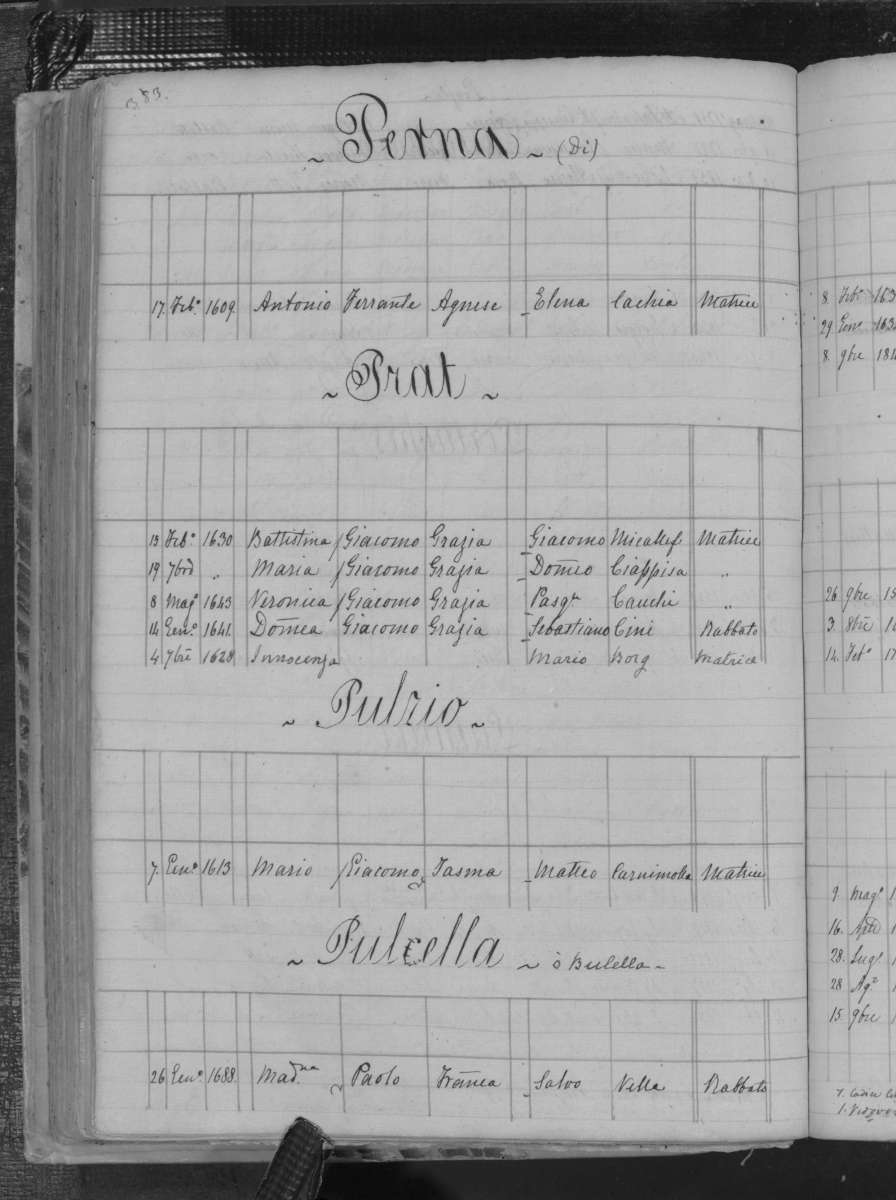 383.
~ Perna ~ (Di)
17. Feb.º 1609. Antonio Ferrante Agnese _ Elena Cachia Matrice
~ Prat ~
13 Feb.º 1630 Battistina Giacomo Grazia _ Giacomo Micallef Matrice
19 7bre " Maria Giacomo Grazia _ Doñeo Ciappisa "
8 Magº 1643 Veronica Giacomo Grazia Pasq. Cauchi "
14 Gen.º 1641. Doñea Giacomo Grazia _ Sebastiano Cini Rabbato
4. 7bre 1628 Innocenza Mario Borg Matrice
~ Pulzio ~
7. Gen.º 1613 Mario Giacomo Tasma _ Matteo Matrice
~ Pulcella ~ ò Bulella -
26 Gen.º 1688. Mad.na Paolo Frãnca _ Salvo Vella Rabbato
8. Feb.º 163
29 Gen.º 163
8. 9bre 18
26. 9bre 15
3. 8bre
14. Feb.º 17
9. Mag.º 1
16. Aple 1
28. Lug.
28 Ag.º
15. 9bre